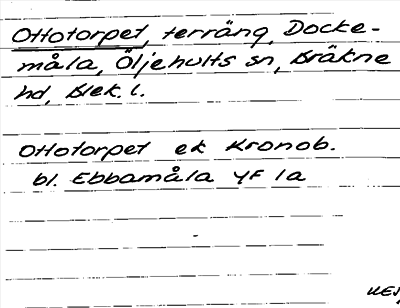 Ottotorpet, terräng, Docke-
måla, Öljehults sn, Bräkne
hd, Blek. l.
Ottotorpet ek Kronob.
bl. Ebbamåla 4F 1a